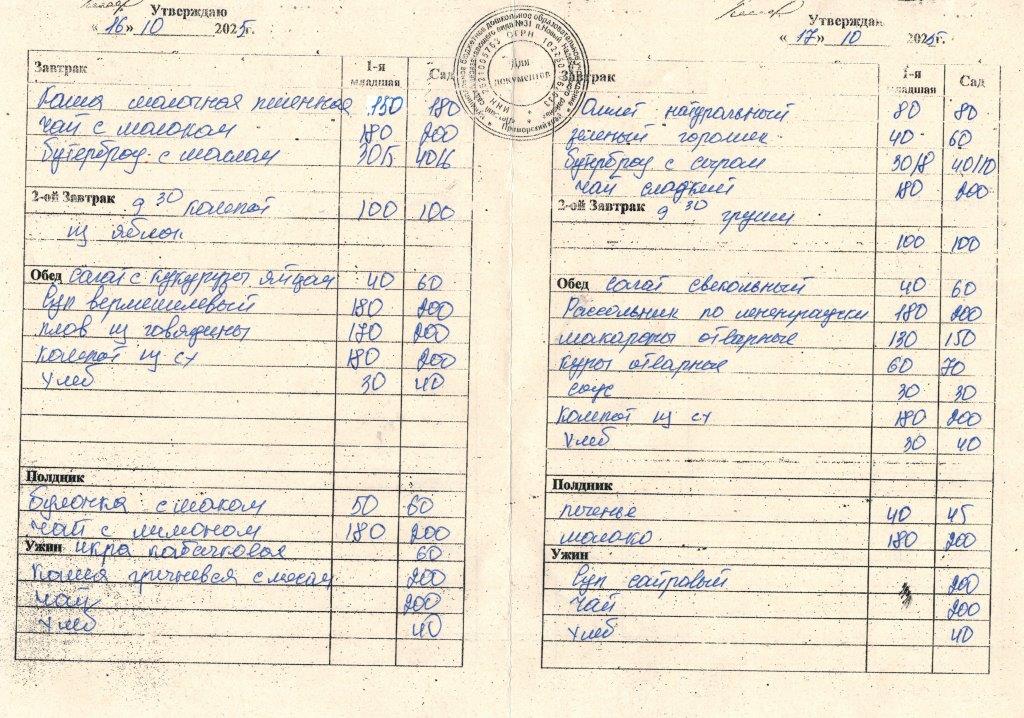 Утверждаю
«16» 10 2025г.
Завтрак 1-я младшая Сад
Каша молочная пшенная 150 180
Чай с молоком 180 200
бутерброд с маслом 30/5 40/6
2-ой Завтрак 9 30 компот 100 100
из яблок
Обед Салат с кукурузы яйцом 40 60
Суп вермешелевый 180 200
плов из говядины 170 200
Компот из с/х 180 200
Хлеб 30 40
Полдник
Булочка с маком 50 60
Чай с лимоном 180 200
Ужин икра кабачковая 60
Каша гричневся с мясам 200
Чай 200
Хлеб 40
Утверждаю
«17» 10 2025г.
Завтрак 1-я младшая Сад
Омлет натуральный 80 80
зеленый горошек 40 60
бутерброд с сыром 30/8 40/10
чай сладкий 180 200
2-ой Завтрак 9 30 груши
100 100
Обед салат свекольный 40 60
Рассольник по ленинградски 180 200
макароны отварные 130 150
Куры отварные 60 70
соус 30 30
Компот из с/х 180 200
Хлеб 30 40
Полдник
печенье 40 45
молоко 180 200
Ужин
Суп сайровый 200
Чай 200
Хлеб 40
Для документов